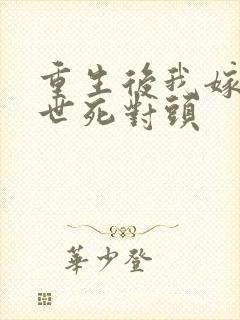 重生後我嫁
世死對頭
華少登